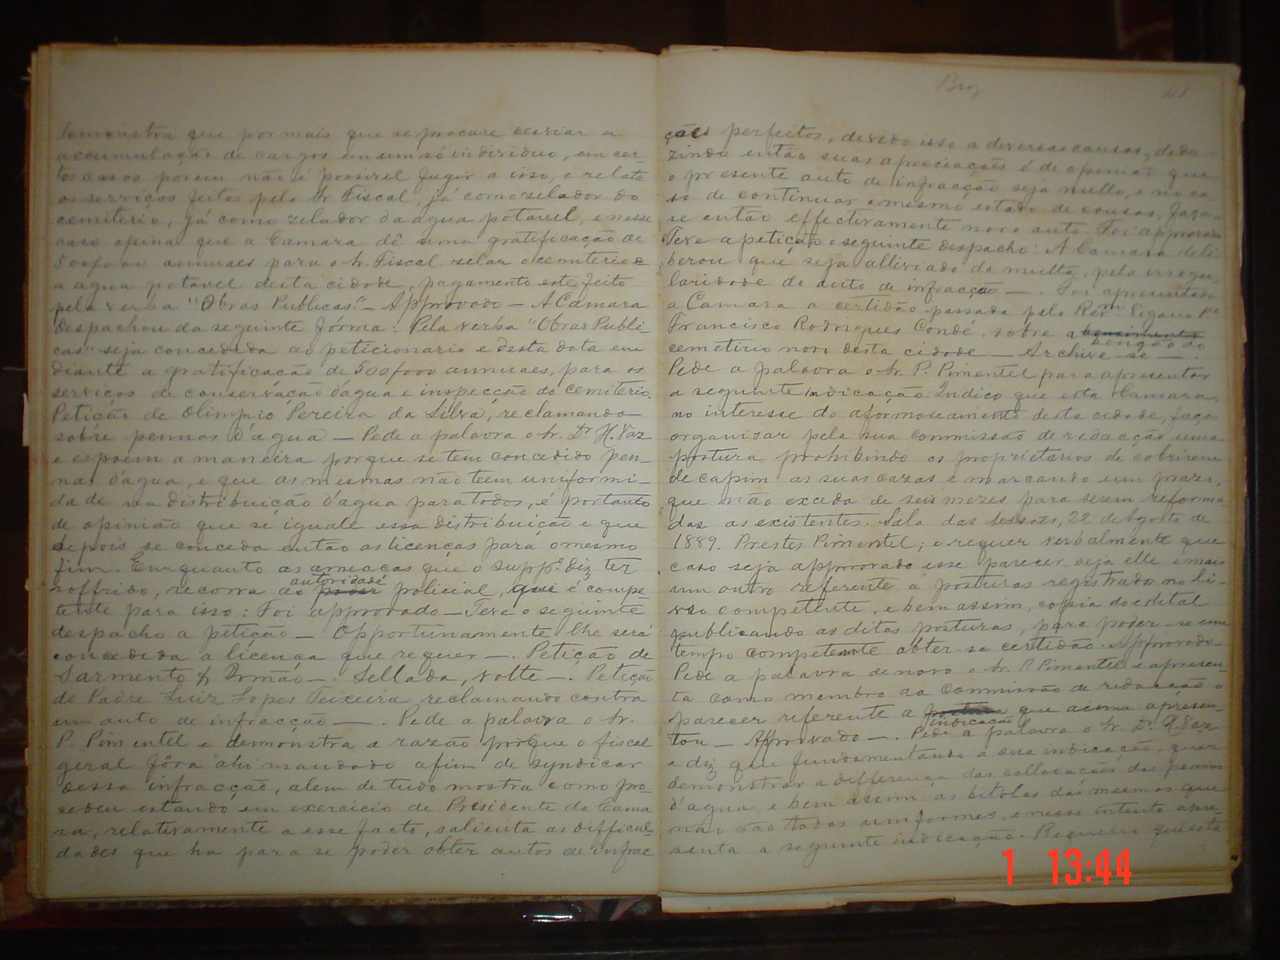 demonstra que por mais que se procure desviar a
accumulação de cargos em um só individuo, em cer-
tos casos porem não é possivel fugir a isso, e relata
os serviços feitos pelo Sr. Fiscal, já como zelador do
cemiterio, já como zelador da agua potavel, e nesse
caso opina que a Camara dê uma gratificação de
500$000 annuaes para o Sr. Fiscal zelar o cemiterio e
a agua potavel desta cidade, pagamento este feito
pela verba "Obras Publicas." – Approvado – A Camara
despachou da seguinte forma: Pela verba "Obras Publi-
cas" seja concedida ao peticionario e desta data em
diante a gratificação de 500$000 annuaes, para os
serviços de conservação d'agua e inspecção do cemiterio.
Petição de Olimpio Pereira da Silva, reclamando
sobre pennas d'agua – Pede a palavra o Sr. Dr. H. Vaz
e expoem a maneira porque se tem concedido pen-
nas d'agua, e que as mesmas não teem uniformi-
dade na distribuição d'agua para todos, é portanto
de opinião que se iguale essa distribuição e que
depois se conceda então as licenças para o mesmo
fim. Emquanto as ameaças que o suppe. diz ter
soffrido, recorra ao poder autoridade policial, que é compe-
tente para isso: Foi approvado – Teve o seguinte
despacho a petição – Opportunamente lhe será
concedida a licença que requer –. Petição de
Sarmento & Irmão –. Sellada, volte –. Petição
do Padre Luiz Lopes Teixeira, reclamando contra
um auto de infracção –. Pede a palavra o Sr.
P. Pimentel e demonstra a razão porque o fiscal
geral fôra ahi mandado afim de syndicar
dessa infracção, alem de tudo mostra como pro-
cedeu estando em exercicio de Presidente da Cama-
ra, relativamente a esse facto, salienta as difficul-
dades que ha para se poder obter autos de infrac
48
ções perfeitos, devido isso a diversas causas; dedu-
zindo então suas apreciações é de opinião que
o presente auto de infracção seja nullo, e no ca-
so de continuar o mesmo estado de cousas, faça-
se então effectivamente novo auto. Foi approvado
Teve a petição o seguinte despacho: A Camara deli-
berou que seja alliviado da multa, pela irregu-
laridade do auto de infracção –. Foi apresentado
a Camara a certidão passada pelo Revm. Vigario Pe.
Francisco Rodrigues Condé, sobre a benção do
cemeterio novo desta cidade – Archive-se –.
Pede a palavra o Sr. P. Pimentel para apresentar
a seguinte indicação. Indico que esta Camara,
no interesse do aformoseamento desta cidade, faça
organizar pela sua commissão de redacção uma
postura prohibindo os proprietarios de cobrirem
de capim as suas cazas e marcando um prazo,
que não exceda de seis mezes para serem reforma-
das as existentes. Sala das Sessões, 22 de Agosto de
1889. Prestes Pimentel; e requer verbalmente que
caso seja approvado esse parecer, seja elle e mais
um outro referente a posturas registrado no li-
vro competente, e bem assim, copia do edital
publicando as ditas posturas, para poder-se em
tempo competente obter-se certidão. Approvado –
Pede a palavra de novo o Sr. P. Pimentel e apresen-
ta como membro da commissão de redacção o
parecer referente a postura indicação que acima apresen-
tou – Approvado –. Pede a palavra o Sr. Dr. H. Vaz
e diz que fundamentando a sua indicação, quer
demonstrar a differença das collocações das pennas
d'agua, e bem assim as bitolas das mesmas que
não são todas uniformes, e nesse intuito apre-
senta a seguinte indicação. Requeiro que esta
1 13:44